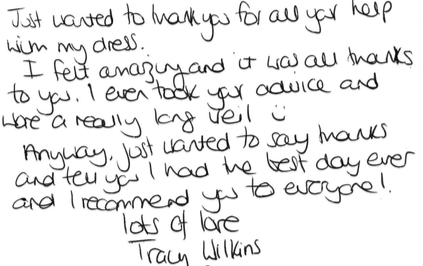 Just wanted to thank you for all your help
with my dress.
I felt amazing and it was all thanks
to you. I even took your advice and
wore a really long veil :)
Anyway, just wanted to say thanks
and tell you I had the best day ever
and I recommend you to everyone!
lots of love
Tracy Wilkins